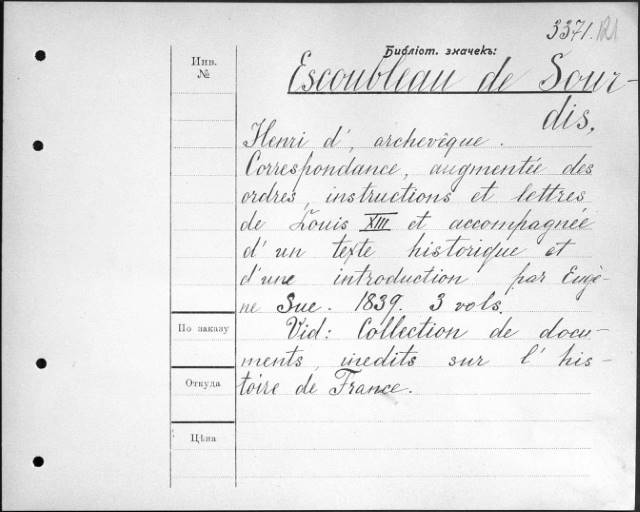 3371.
Библіот. значекъ:
Инв.
№
Escoubleau de Sour-
dis,
Henri d', archevêque.
Correspondance, augmentée des
ordres, instructions et lettres
de Louis XIII et accompagnée
d'un texte historique et
d'une introduction par Eugè-
ne Sue. 1839. 3 vols.
По заказу
Vid: Collection de docu-
ments inedits sur l'his-
Откуда
toire de France.
Цѣна